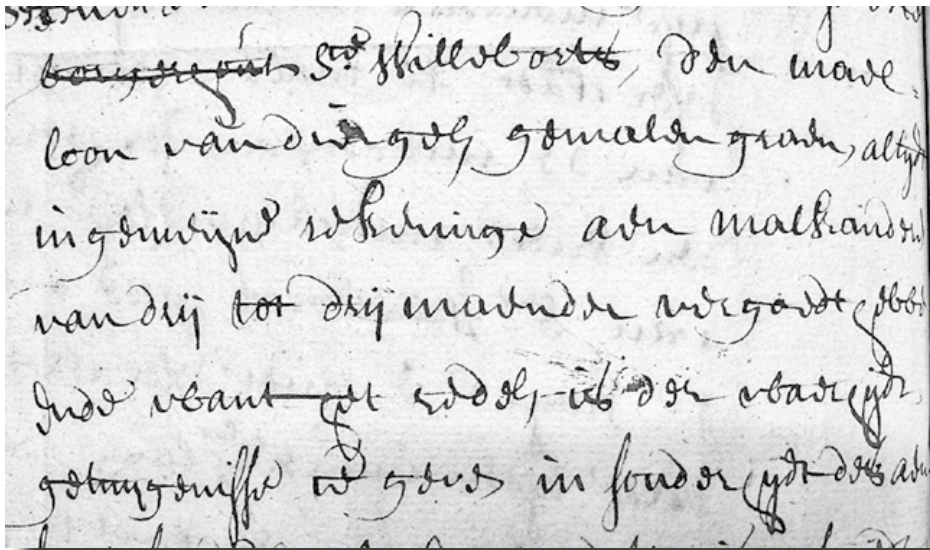 Sr. Willeborts, den mael
loon van diergel. gemalen graen, altyt
in gemeijne rekeninge aen malkander
van drij tot drij maenden vergoedt hebbe
Ende want het redel. is der waerhijt
getuygenisse te geven in sonderhijt des aen